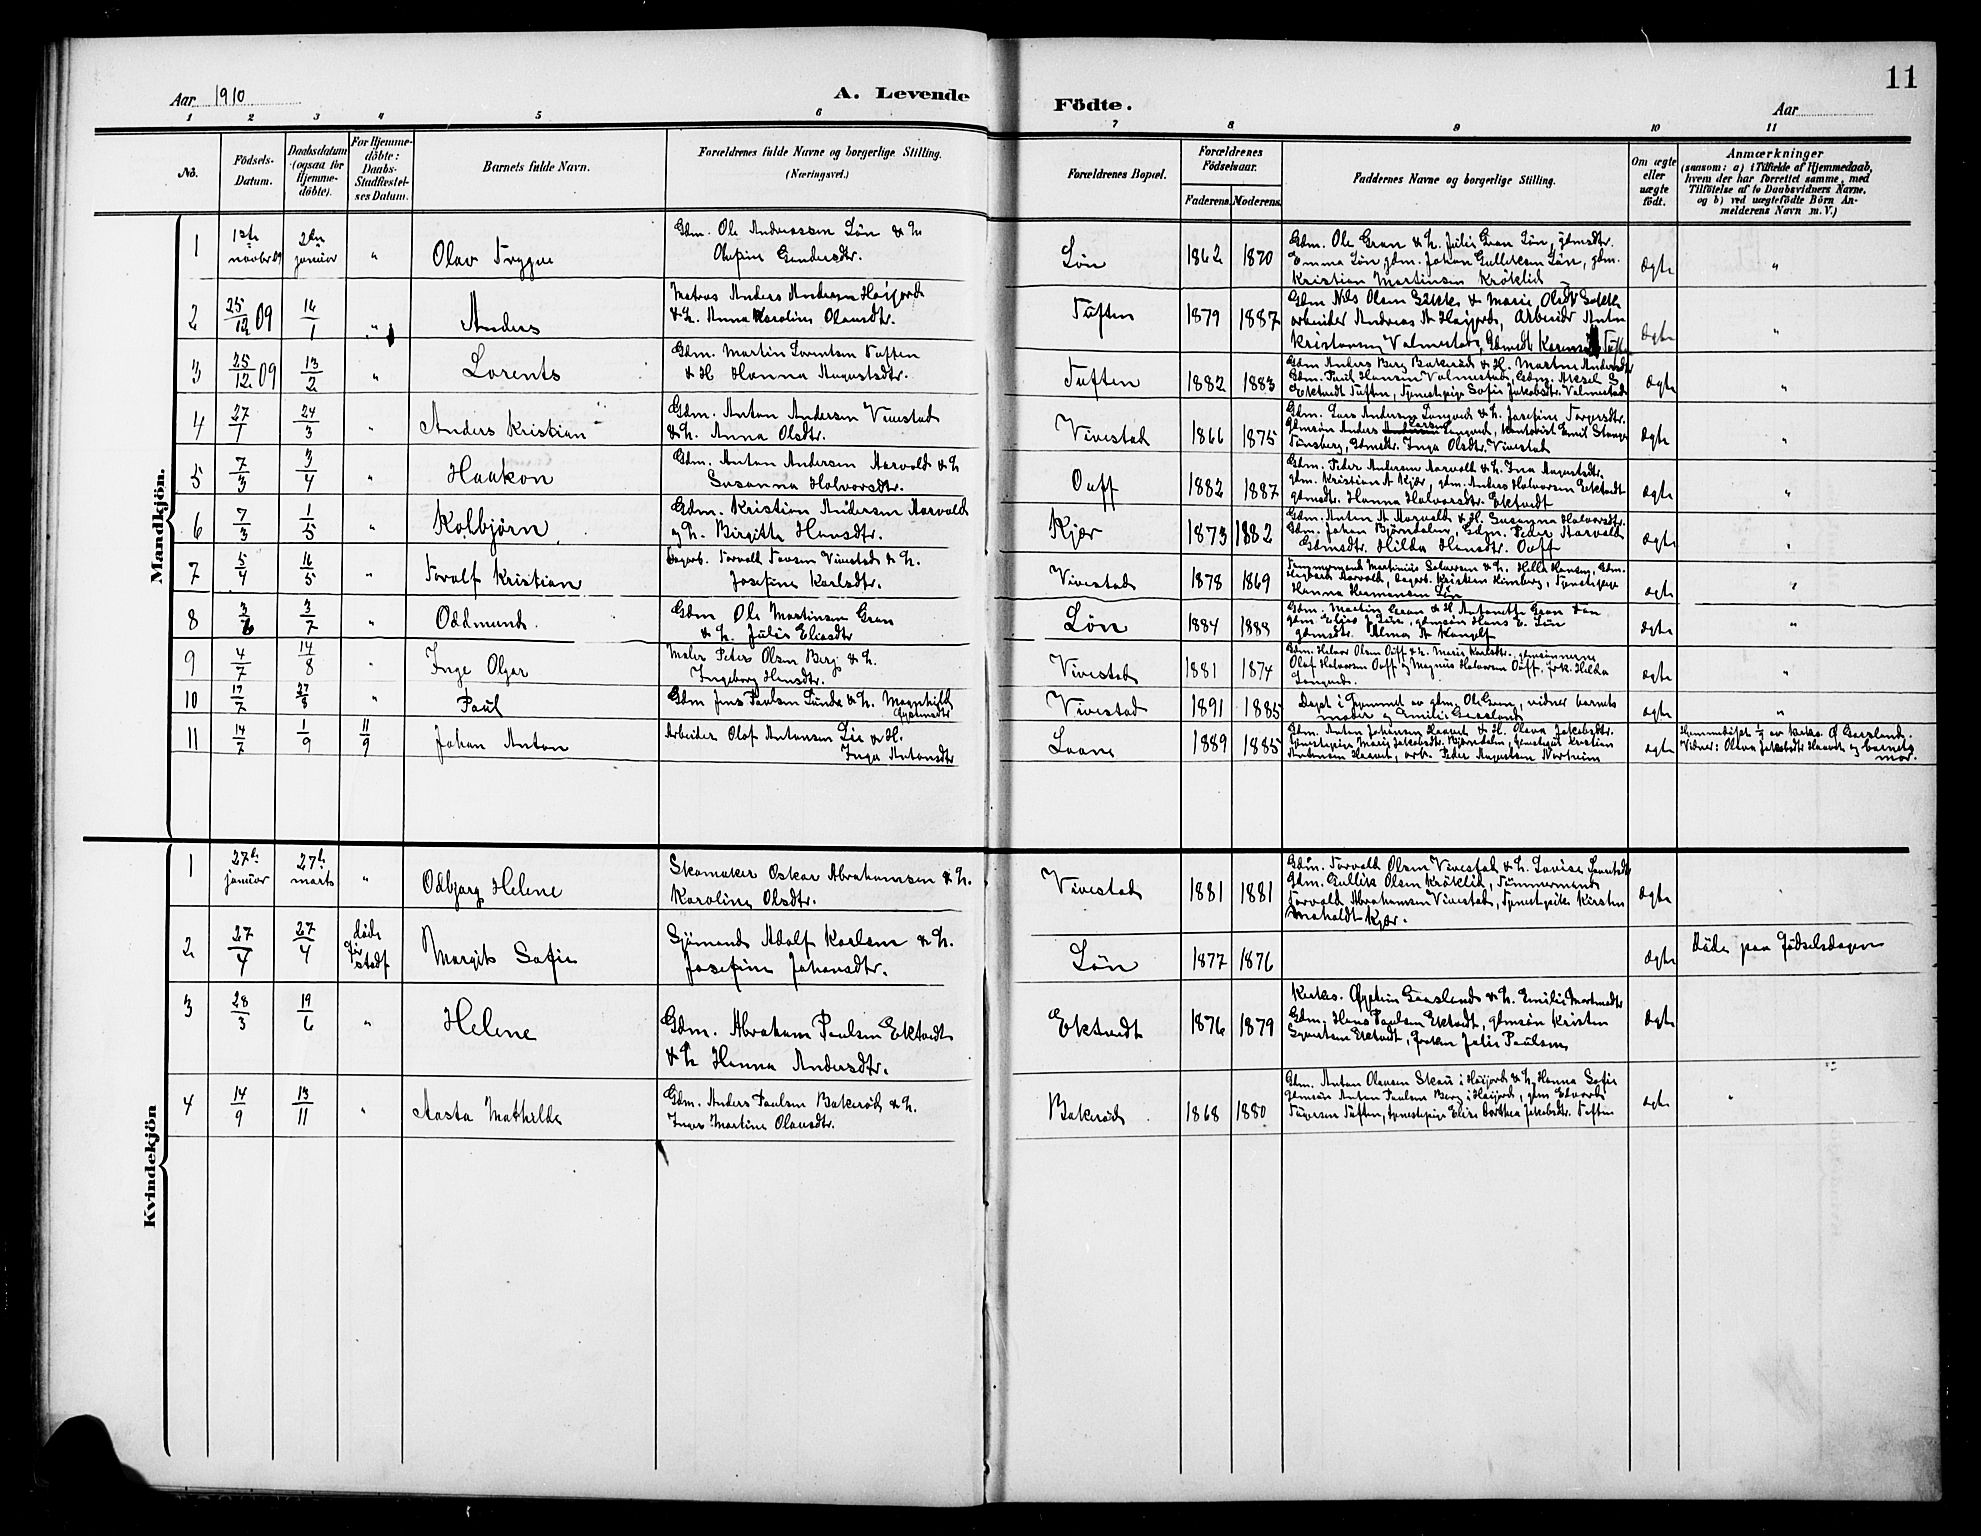 11
Aar 1910
A. Levende
Födte.
Aar
1 2 3 4 5 6 7 8 9 10 11
No.
Födsels-
Datum.
Daabsdatum
(ogsaa for
Hjemme-
döbte).
For Hjemme-
döbte:
Daabs-
Stadfæstel-
ses Datum.
Barnets fulde Navn.
Forældrenes fulde Navne og borgerlige Stilling.
(Næringsvei.)
Forældrenes Bopæl.
Forældrenes
Födselsaar.
Faderens. Moderens.
Faddernes Navne og borgerlige Stilling.
Om ægte
eller
uægte
födt.
Anmærkninger
(saasom: a) i Tilfælde af Hjemmedaab,
hvem der har forrettet samme, med
Tilföielse af to Daabsvidners Navne,
og b) ved uægtefödte Börn An-
melderens Navn m. V.)
Mandkjön.
1 1ste novbr 09 2den januar " Olav Trygve
Gdm. Ole Andreassen Løn & h.
Olefine Gundersdtr.
Løn 1862 1870
Gdm. Ole Gran & h. Julie Gran Løn, gdmsdtr.
Emma Løn, gdm. Johan Gulliksen Løn, gdm.
Kristian Martinsen Krøklid
Ægte "
2 25/12 09 16/1 " Anders
Matros Anders Andersen Haijord
& h. Anna Karoline Olausdtr.
Tuften 1879 1887
Gdm Nils Olsen & Marie Olsdtr
arbeider Andreas A Haijord, Arbeider Anton
Kristensen Valmestad, Tuften
Ægte "
3 25/12 09 13/2 " Lorents
Gdm. Martin Lorentsen Tuften
& H. Hanna Augustsdtr.
Tuften 1882 1883
Gdm Anders Berg Bakerød & H. Martine Andersdtr
Gdm. Paul Hansen Valmestad, Gdm. Aksel S.
Ektvedt Tuften, Tjenestepige Sofie Jakobsdtr. Valmestad
Ægte "
4 27/1 24/3 " Anders Kristian
Gdm. Anton Andersen Vivestad
& h. Anna Olsdtr.
Vivestad 1866 1875
Gdm. Lars Andersen Langved & h. Josefine Torgersdtr.
Gdmsøn Anders Larsen Langved, Kontorist Emil Stange
Tønsberg, Gdmsdtr. Inga Olsdtr. Vivestad
Ægte "
5 7/3 3/4 " Haakon
Gdm. Anton Andersen Aarvold & h
Susanna Halvorsdtr.
Ouff 1882 1887
Gdm. Peder Andersen Aarvold & h. Ina Augustsdtr.
gdm. Kristian A Kjær, gdm. Anders Halvorsen Ektvedt
gdmsdtr. Hanna Halvorsdtr. Ektvedt
Ægte "
6 7/3 1/5 " Kolbjørn
Gdm. Kristian Andersen Aarvold
og h. Birgitte Hansdtr.
Kjær 1873 1882
Gdm. Anton A Aarvold & H. Susanna Halvorsdtr.
Gdm. Johan Bjørndalen, Gdm. Peder Aarvold
Gdmsdtr. Hilda Hansdtr. Ouff
Ægte "
7 5/4 16/5 " Torolf Kristian
Dagarb. Torvald Vivestad & h.
Josefine Karlsdtr.
Vivestad 1878 1869
Tømmermand Martinius & h. Helle Hansen, Gdm.
Aarvold, Dagarb. Kristian Himberg, Tjenestepige
Hanna Hermansen Løn
ægte "
8 3/6 3/7 " Oddmund.
Gdm Ole Martinsen Gran
& h. Julie Eliasdtr
Løn 1884 1888
Gdm. Martin Gran & H Antonette Gran Løn
gdm. Elias J Løn, gdmsøn Hans E. Løn
gdmsdtr. Alma A
ægte "
9 4/7 14/8 " Inge Olgar
Maler Peter Olsen Berg & h.
Ingeborg Hansdtr.
Vivestad 1881 1874
Gdm. Halvor Olsen Ouff & h. Marie Karlsdtr. gdmsønnerne
Olaf Halvorsen Ouff og Magnus Halvorsen Ouff. frk. Hilda
Langved.
ægte "
10 17/7 27/8 " Paul
Gdm Jens Paulsen Linde & h. Magnhild
Vivestad 1891 1885
Døpt i hjemmet av gdm. Ole Gran, vidner barnets
moder og Emilie Gaasland
ægte "
11 14/7 1/9 11/9 Johan Anton
Arbeider Olaf Antonsen Lie & H.
Inga Antonsdtr
Laane 1889 1885
Gdm. Anton Johansen Haavet & H. Olava Jakobsdtr.
tjenestepige Marie Jakobsdtr. Bjørndalen, Kristian
Antonsen Haavet, arb. Peder Augustsen Norheim
ægte
Hjemmedøpt 1/9 av kirkes. Ø Gaasland.
Vidner: Olava Jakobsdtr Haavet og barnets
mor.
Kvindekjön
1 27de januar 27de marts " Odbjørg Helene
Skomaker Oskar Abrahamsen & h.
Karoline Olsdtr.
Vivestad 1881 1881
Gdm. Torvald Olsen Vivestad & h. Lovise Lauritsdtr
Gdm. Gullik Olsen Krøklid, Tømmermand
Torvald Abrahamsen Vivestad, Tjenestepike Kirsten
Kjær.
Ægte "
2 27/4 27/4 døde før stadf Margit Sofie
Sjømand Adolf Karlsen & h.
Josefine Johansdtr.
Løn 1877 1876
Ægte
Døde paa Fødselsdagen
3 28/3 19/6 " Helene
Gdm. Abraham Paulsen Ektvedt
& h Hanna Andersdtr.
Ektvedt 1876 1879
Kirkes. Øystein Gaasland & h. Emilie
Gdm. Hans Paulsen Ektvedt, gdmsøn Kristen
Syvertsen Ektvedt, frøken Julie Paulsen,
Ægte
4 14/9 13/11 " Aasta Mathilde
Gdm. Anders Paulsen Bakerød & h.
Inger Martine Olausdtr.
Bakerød 1868 1880
Gdm. Anton Olausen Skau i Haijord & h. Hanna Sofie
Gdmsøn Anton Paulsen Berg i Haijord, gdm Edvard
Tuften, tjenestepige Elise Dorthea Jakobsdtr. Tuften
ægte "